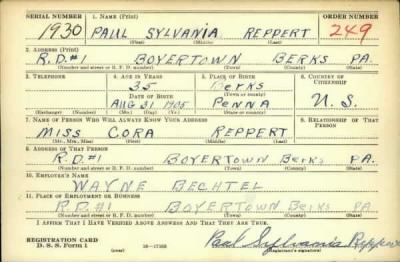 SERIAL NUMBER 1. NAME (Print) ORDER NUMBER
1930 PAUL SYLVANIA REPPERT 249
(First) (Middle) (Last)
2. ADDRESS (Print)
R.D.#1 BOYERTOWN BERKS PA.
(Number and street or R. F. D. number) (Town) (County) (State)
3. TELEPHONE 4. AGE IN YEARS 5. PLACE OF BIRTH 6. COUNTRY OF CITIZENSHIP
35 Berks
DATE OF BIRTH (Town or county)
AUG 31 1905 PENNA U.S.
(Exchange) (Number) (Mo.) (Day) (Yr.) (State or country)
7. NAME OF PERSON WHO WILL ALWAYS KNOW YOUR ADDRESS 8. RELATIONSHIP OF THAT PERSON
MISS CORA REPPERT
(Mr., Mrs., Miss) (First) (Middle) (Last)
9. ADDRESS OF THAT PERSON
R.D.#1 BOYERTOWN Berks PA.
(Number and street or R. F. D. number) (Town) (County) (State)
10. EMPLOYER'S NAME
WAYNE BECHTEL
11. PLACE OF EMPLOYMENT OR BUSINESS
R.D. #1 BOYERTOWN Berks PA
(Number and street or R. F. D. number) (Town) (County) (State)
I AFFIRM THAT I HAVE VERIFIED ABOVE ANSWERS AND THAT THEY ARE TRUE.
REGISTRATION CARD
D. S. S. Form 1 (over) 16—17105 Paul Sylvania Reppert
(Registrant's signature)